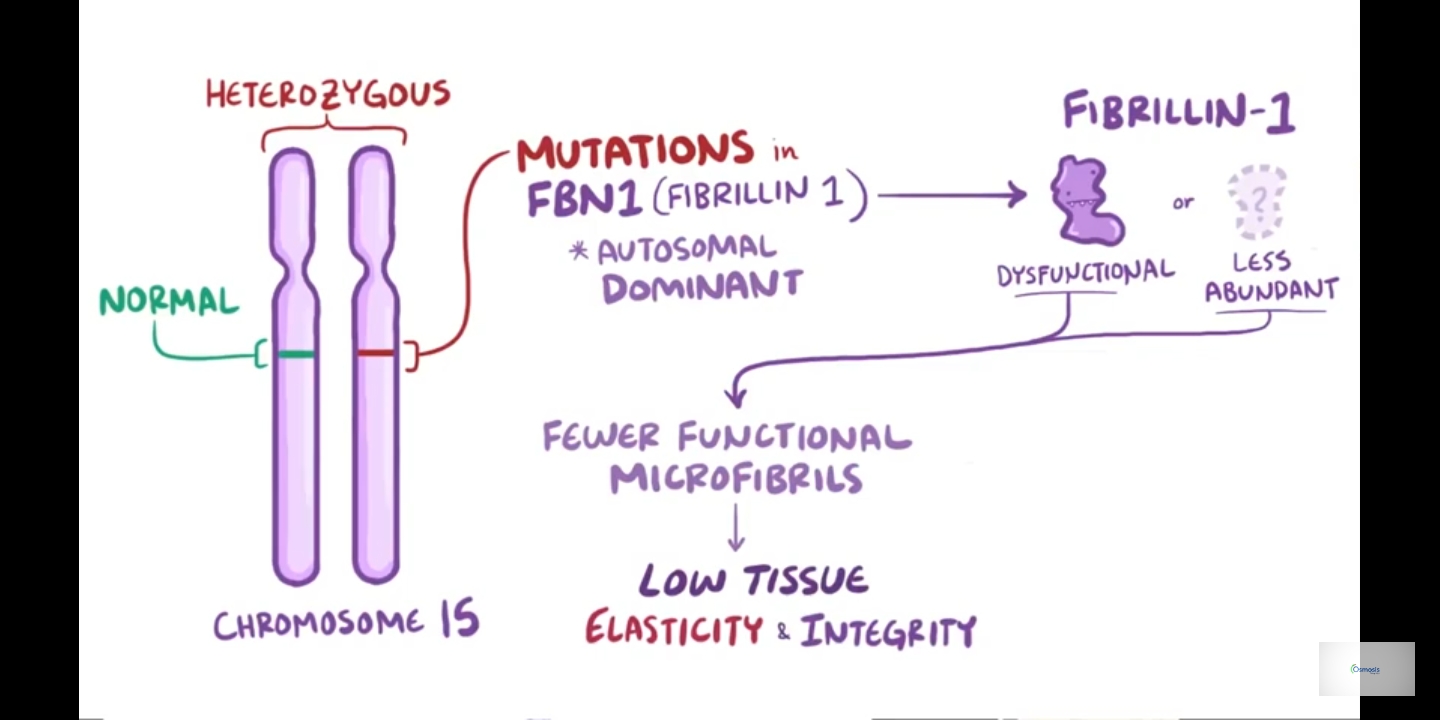 HETEROZYGOUS
NORMAL
CHROMOSOME 15
MUTATIONS in
FBN1 (FIBRILLIN 1)
* AUTOSOMAL
DOMINANT
FIBRILLIN-1
?
or
DYSFUNCTIONAL
LESS
ABUNDANT
FEWER FUNCTIONAL
MICROFIBRILS
LOW TISSUE
ELASTICITY & INTEGRITY
Osmosis